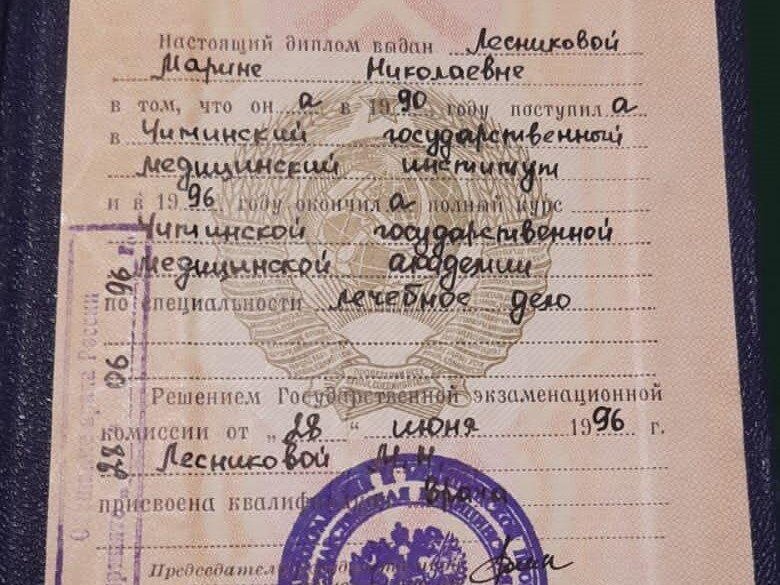 Настоящий диплом выдан Лесниковой
Марине Николаевне
в том, что он а в 1990 году поступил а
в Читинский государственный
медицинский институт
и в 1996 году окончил а полный курс
Читинской государственной
медицинской академии
по специальности лечебное дело
Решением Государственной экзаменационной
комиссии от „28“ июня 1996 г.
Лесниковой М.Н
присвоена квалификация врача
Председатель
28 06 96 г.
врача России